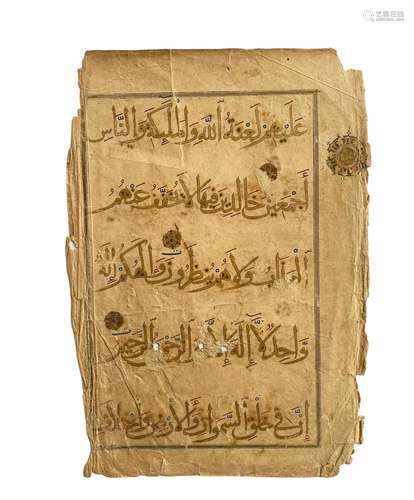 عَلَيْهِمْ لَعْنَةُ اللَّهِ وَالْمَلٰئِكَةِ وَالنَّاسِ
أَجْمَعِينَ خَالِدِينَ فِيهَا لَا يُخَفَّفُ عَنْهُمُ
الْعَذَابُ وَلَا هُمْ يُنْظَرُونَ وَإِلٰهُكُمْ إِلٰهٌ
وَاحِدٌ لَا إِلٰهَ إِلَّا هُوَ الرَّحْمٰنُ الرَّحِيمُ
إِنَّ فِي خَلْقِ السَّمٰوَاتِ وَالْأَرْضِ وَاخْتِلَافِ